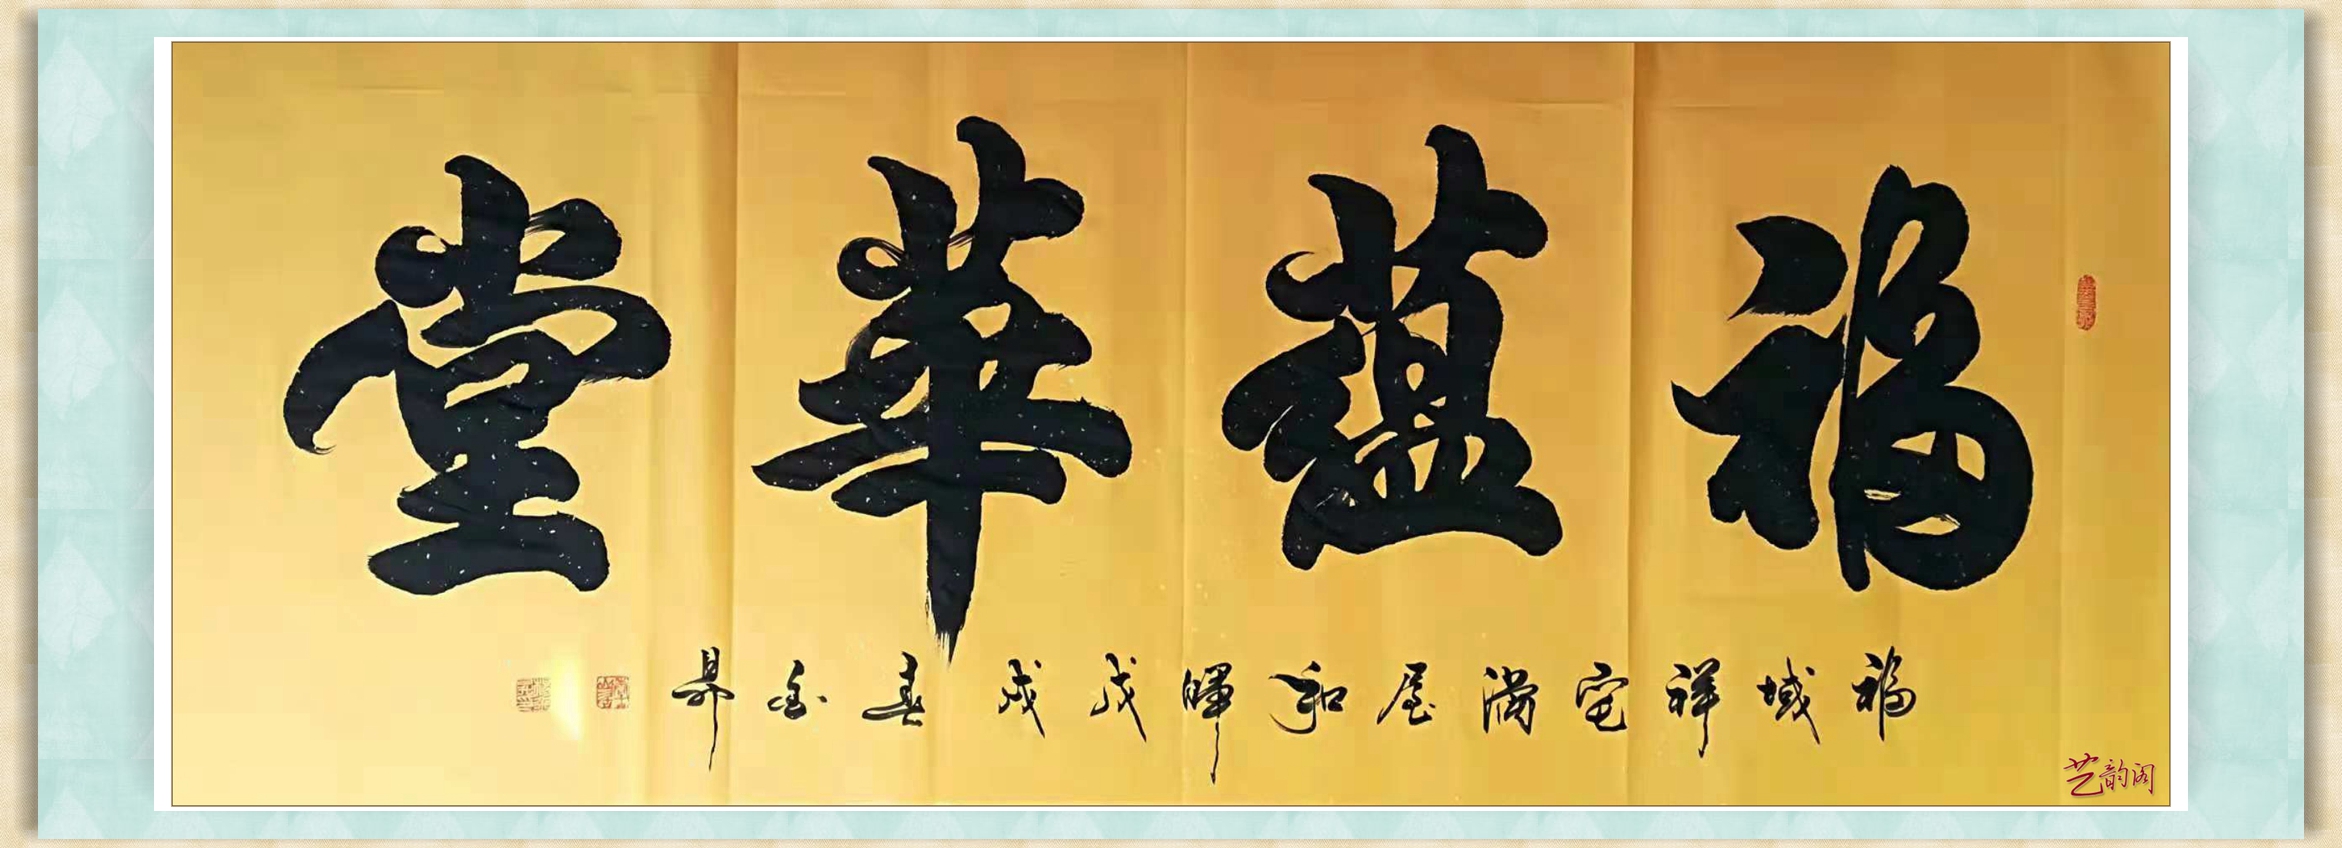 福蕴華堂
福域祥宅满屋和暉戊戌春金昇
艺韵阁